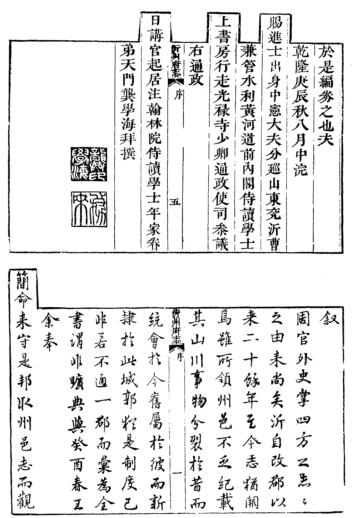 於是編券之也夫
乾隆庚辰秋八月中浣
賜進士出身中憲大夫分巡山東兗沂曹
兼管水利黃河道前內閣侍讀學士
上書房行走光祿寺少卿通政使司叅議
右通政
沂州府志 序 五
日講官起居注翰林院侍讀學士年家眷
弟天門龔學海拜撰
叙
周官外史掌四方之志志
之由来尚矣沂自改郡以
来二十餘年至今志猶闕
焉雖所領州邑不乏紀載
其山川事物分裂於昔而
沂州府志 序 一
統會於今舊屬於彼而新
隸於此城郭猶是制度已
非若不通一郡而彙為全
書謂非曠典與癸酉春王
余奉
簡命来守是邦取州邑志而觀